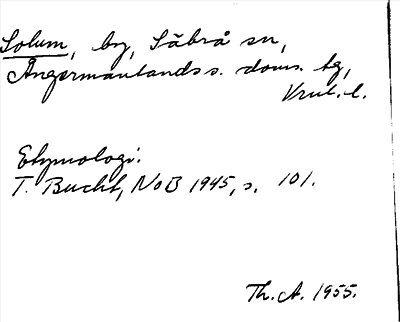 Solum, by, Säbrå sn,
Ångermanlands s. doms. tg,
Vnl. l.
Etymologi:
T. Bucht, NoB 1945, s. 101.
Th. A. 1955.